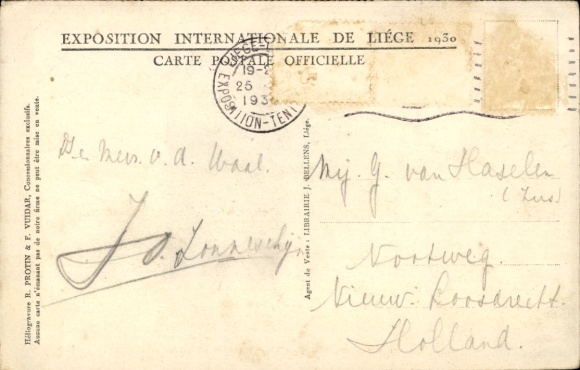 EXPOSITION INTERNATIONALE DE LIÉGE 1930
CARTE POSTALE OFFICIELLE
LIEGE-L
19-2
25
193
EXPOSITION-TENT
v. d. Waal.
J. v. Zonneschijn
Mej. G. van Haselen
(Zus)
Nootweg.
Nieuw. Loosdrecht.
Holland.
Héliogravure R. PROTIN & F. VUIDAR, Concessionnaires exclusifs.
Aucune carte n'émanant pas de notre firme ne peut être mise en vente.
Agent de Vente : LIBRAIRIE J. BELLENS, Liége.